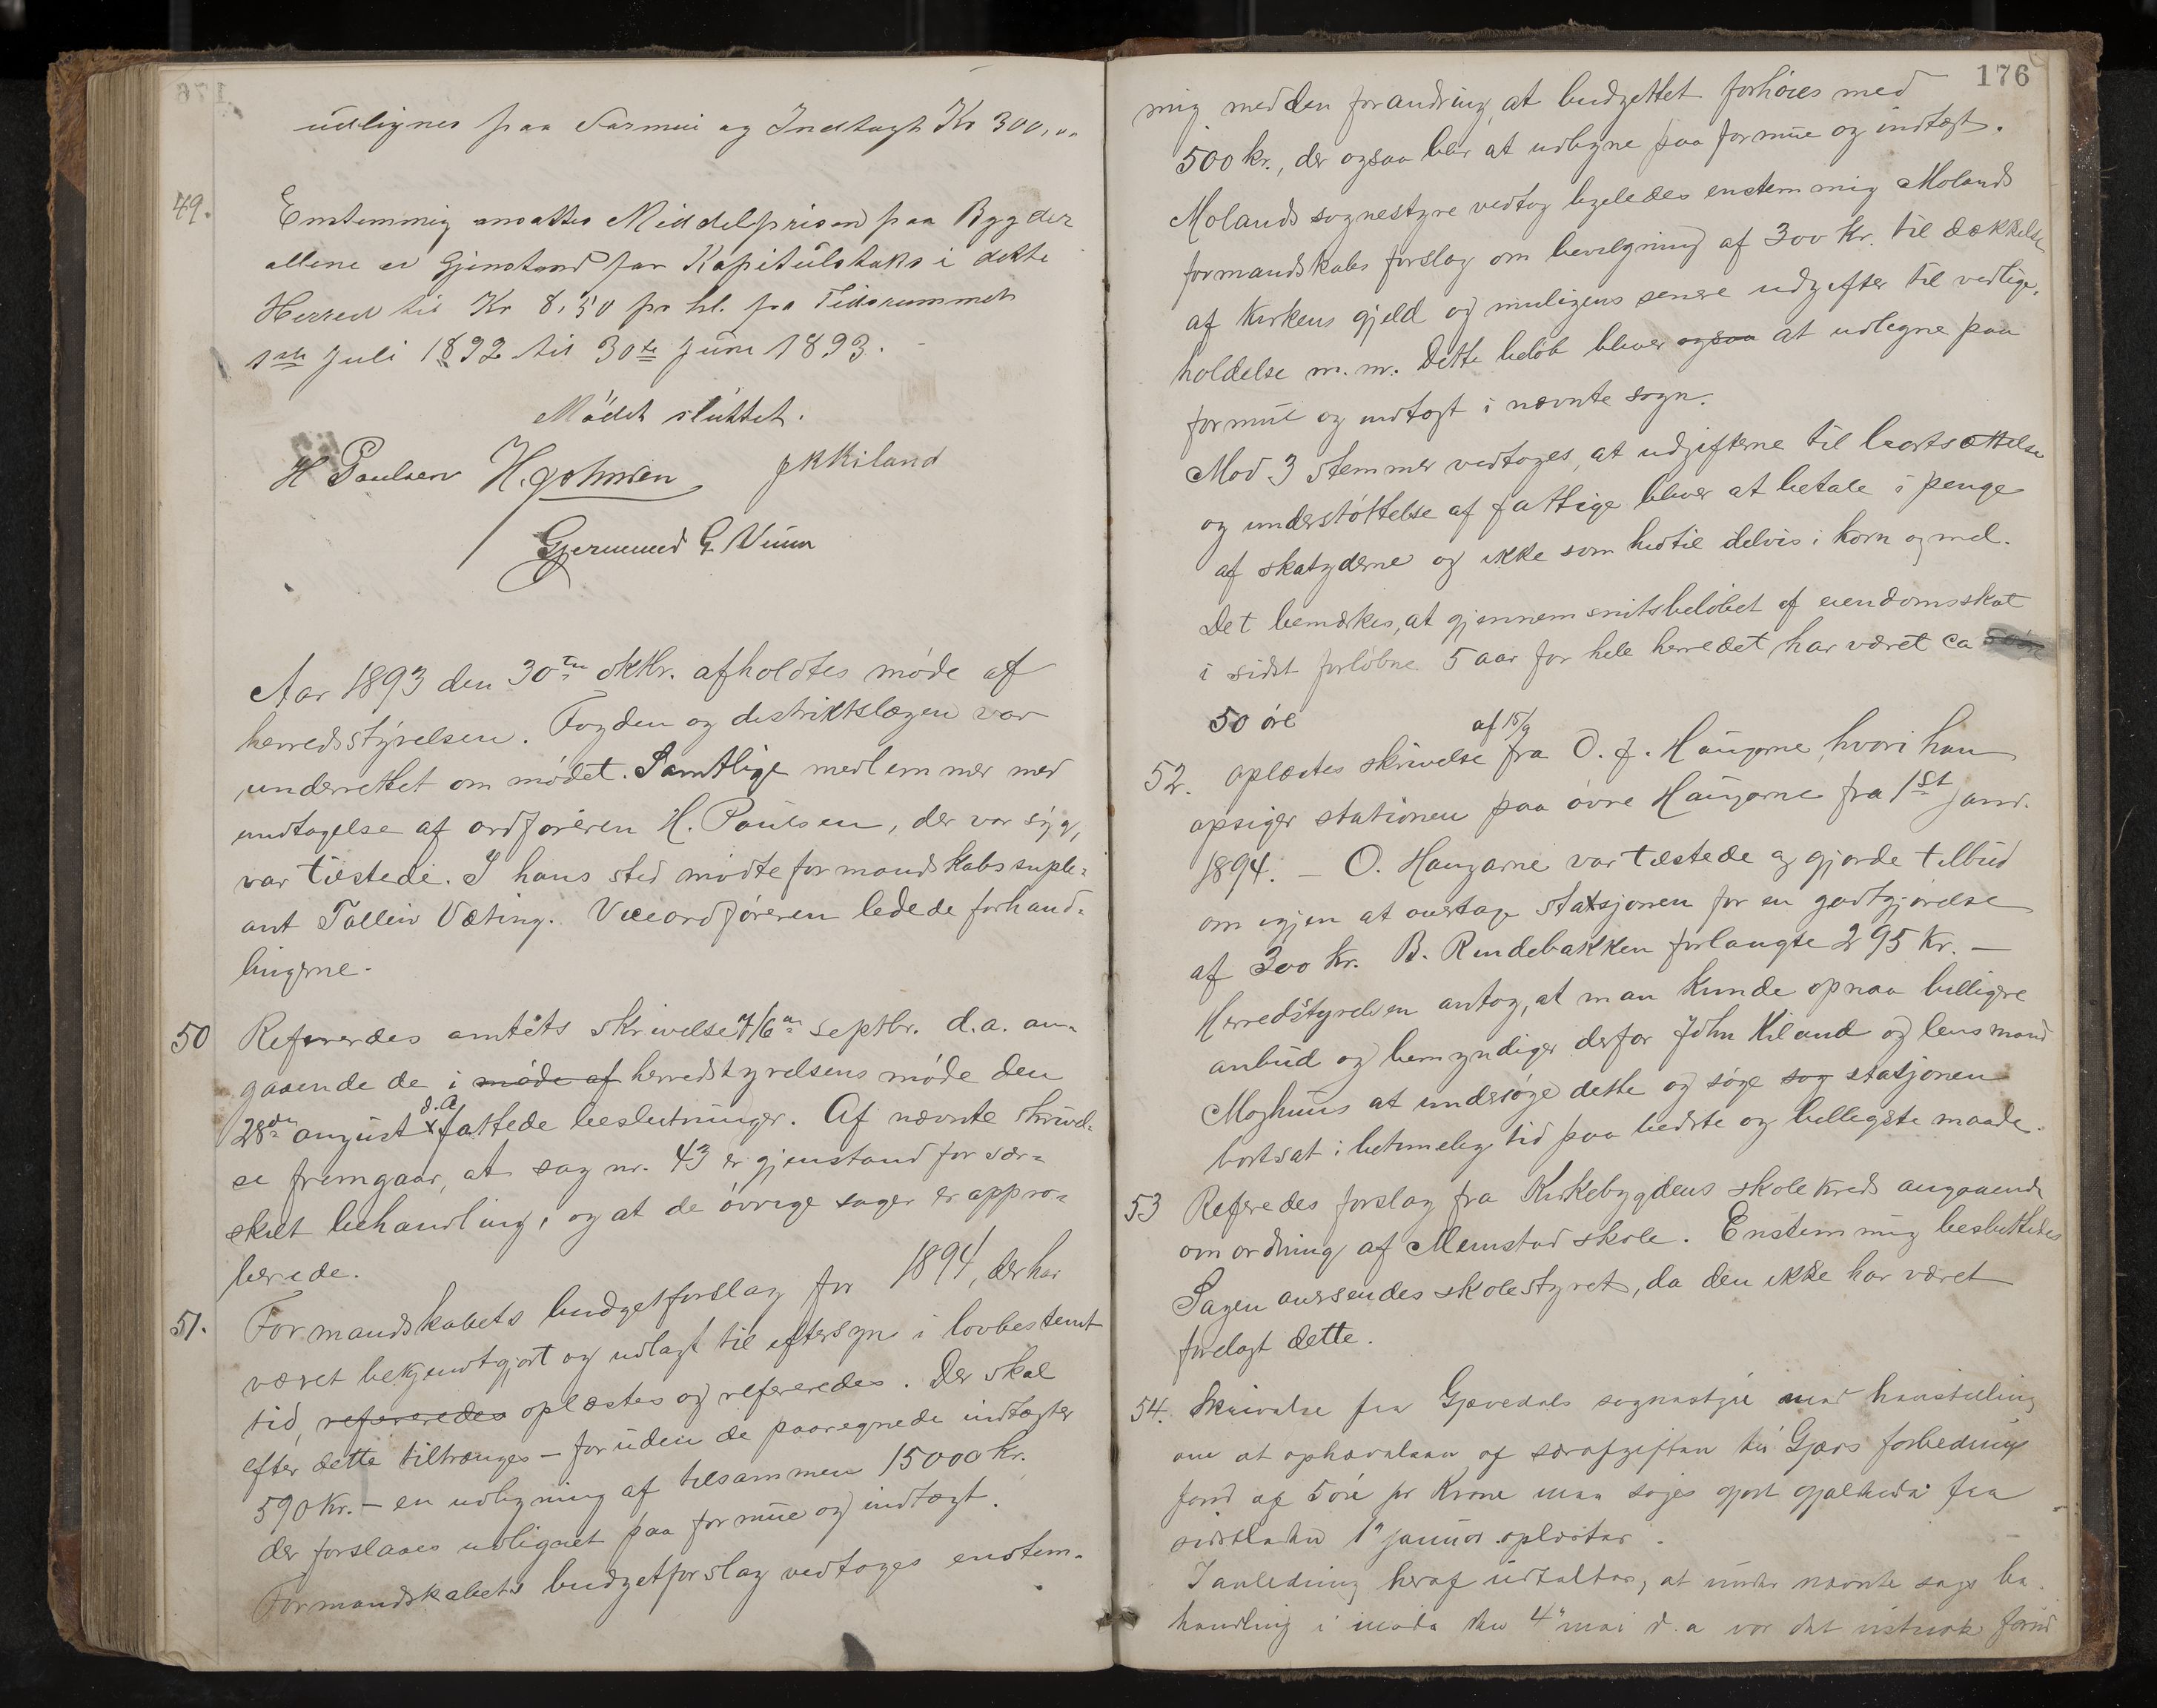 udlignes paa Formue og Indtægt Kr 300,oo
49.
Enstemmig ansattes Middelprisen paa Byg der
allene er Gjenstand for Kapitelstakst i dette
Herred til Kr 8,50 pr hl. for Tidsrummet
1ste Juli 1892 til 30te Juni 1893.
Mödet sluttet.
H Paulsen H. Johnsen JKKiland
Gjermund G.
Aar 1893 den 30te oktbr. afholdtes möde af
herredsstyrelsen. Fogden og distriktslægen var
underrettet om mödet. Samtlige medlemmer med
undtagelse af ordföreren H. Paulsen, der var syg,
var tilstede. I hans sted mödte formandskabssuple-
ant Talleiv Væting. Viceordföreren ledede forhand-
lingerne.
50 Refereredes amtets skrivelse af 6te septbr. d.a. an-
gaaende de i möde af herredstyrelsens möde den
28de august d.a. fattede beslutninger. Af nævnte skrivel-
se fremgaar, at sag nr. 43 er gjenstand for sær-
skilt behandling, og at de övrige sager er appro-
berede.
51. Formandskabets budgetforslag for 1894, der har
været bekjendtgjort og udlagt til eftersyn i lovbestemt
tid, refereredes oplæstes og refereredes. Der skal
efter dette tiltrænges – foruden de paaregnede indtægter
590 Kr. – en udligning af tilsammen 15000 Kr.
der forslaaes udlignet paa formue og indtægt.
Formandskabets budgetforslag vedtoges enstem-
176
mig med den forandring, at budgettet forhöies med
500 kr., der ogsaa blir at udligne paa formue og indtægt.
Molands sognestyre vedtog ligeledes enstemmig Molands
formandskabs forslag om bevilgning af 300 Kr. til dækkelse
af Kirkens gjeld og muligens senere udgifter til vedlige-
holdelse m.m. Dette belöb bliver ogsaa at udligne paa
formue og indtægt i nævnte sogn.
Mod 3 stemmer vedtoges, at udgifterne til bortsættelse
og understöttelse af fattige bliver at betale i penge
af skatyderne og ikke som hidtil delvis i korn og mel.
Det bemærkes, at gjennemsnitsbelöbet af eiendomsskat
i sidst forlöbne 5 aar for hele herredet har været ca 
50 öre
52. Oplæstes skrivelse af 15/9 fra O. J. Haugarne, hvori han
opsiger stationen paa övre Haugarne fra 1st janr.
1894. – O. Haugarne var tilstede og gjorde tilbud
om igjen at overtage statsjonen for en godtgjörelse
af 300 kr. B. Rindebakken forlangte 295 Kr. –
Herredstyrelsen antog, at man kunde opnaa billigere
anbud og bemyndiger derfor John Kiland og lensmand
Moghuus at undersöge dette og söge sog statjonen
bortsat i betimelig tid paa bedste og billigste maade.
53 Refereredes forslag fra Kirkebygdens skolekreds angaaende
omordning af Memstad skole. Enstemmig besluttedes
Sagen oversendes skolestyret, da den ikke har været
forelagt dette.
54. Skrivelse fra Gjøvedals sognestyre med henstilling
om at ophævelsen af særafgiften til Gjærs forbedrings
fond af 5 öre pr Krone maa söges gjort gjældende fra
sidstleden 1ste januar oplæstes.
I anledning heraf udtaltes, at under nævnte sags be-
handling i möde den 4de mai d. a var det forud